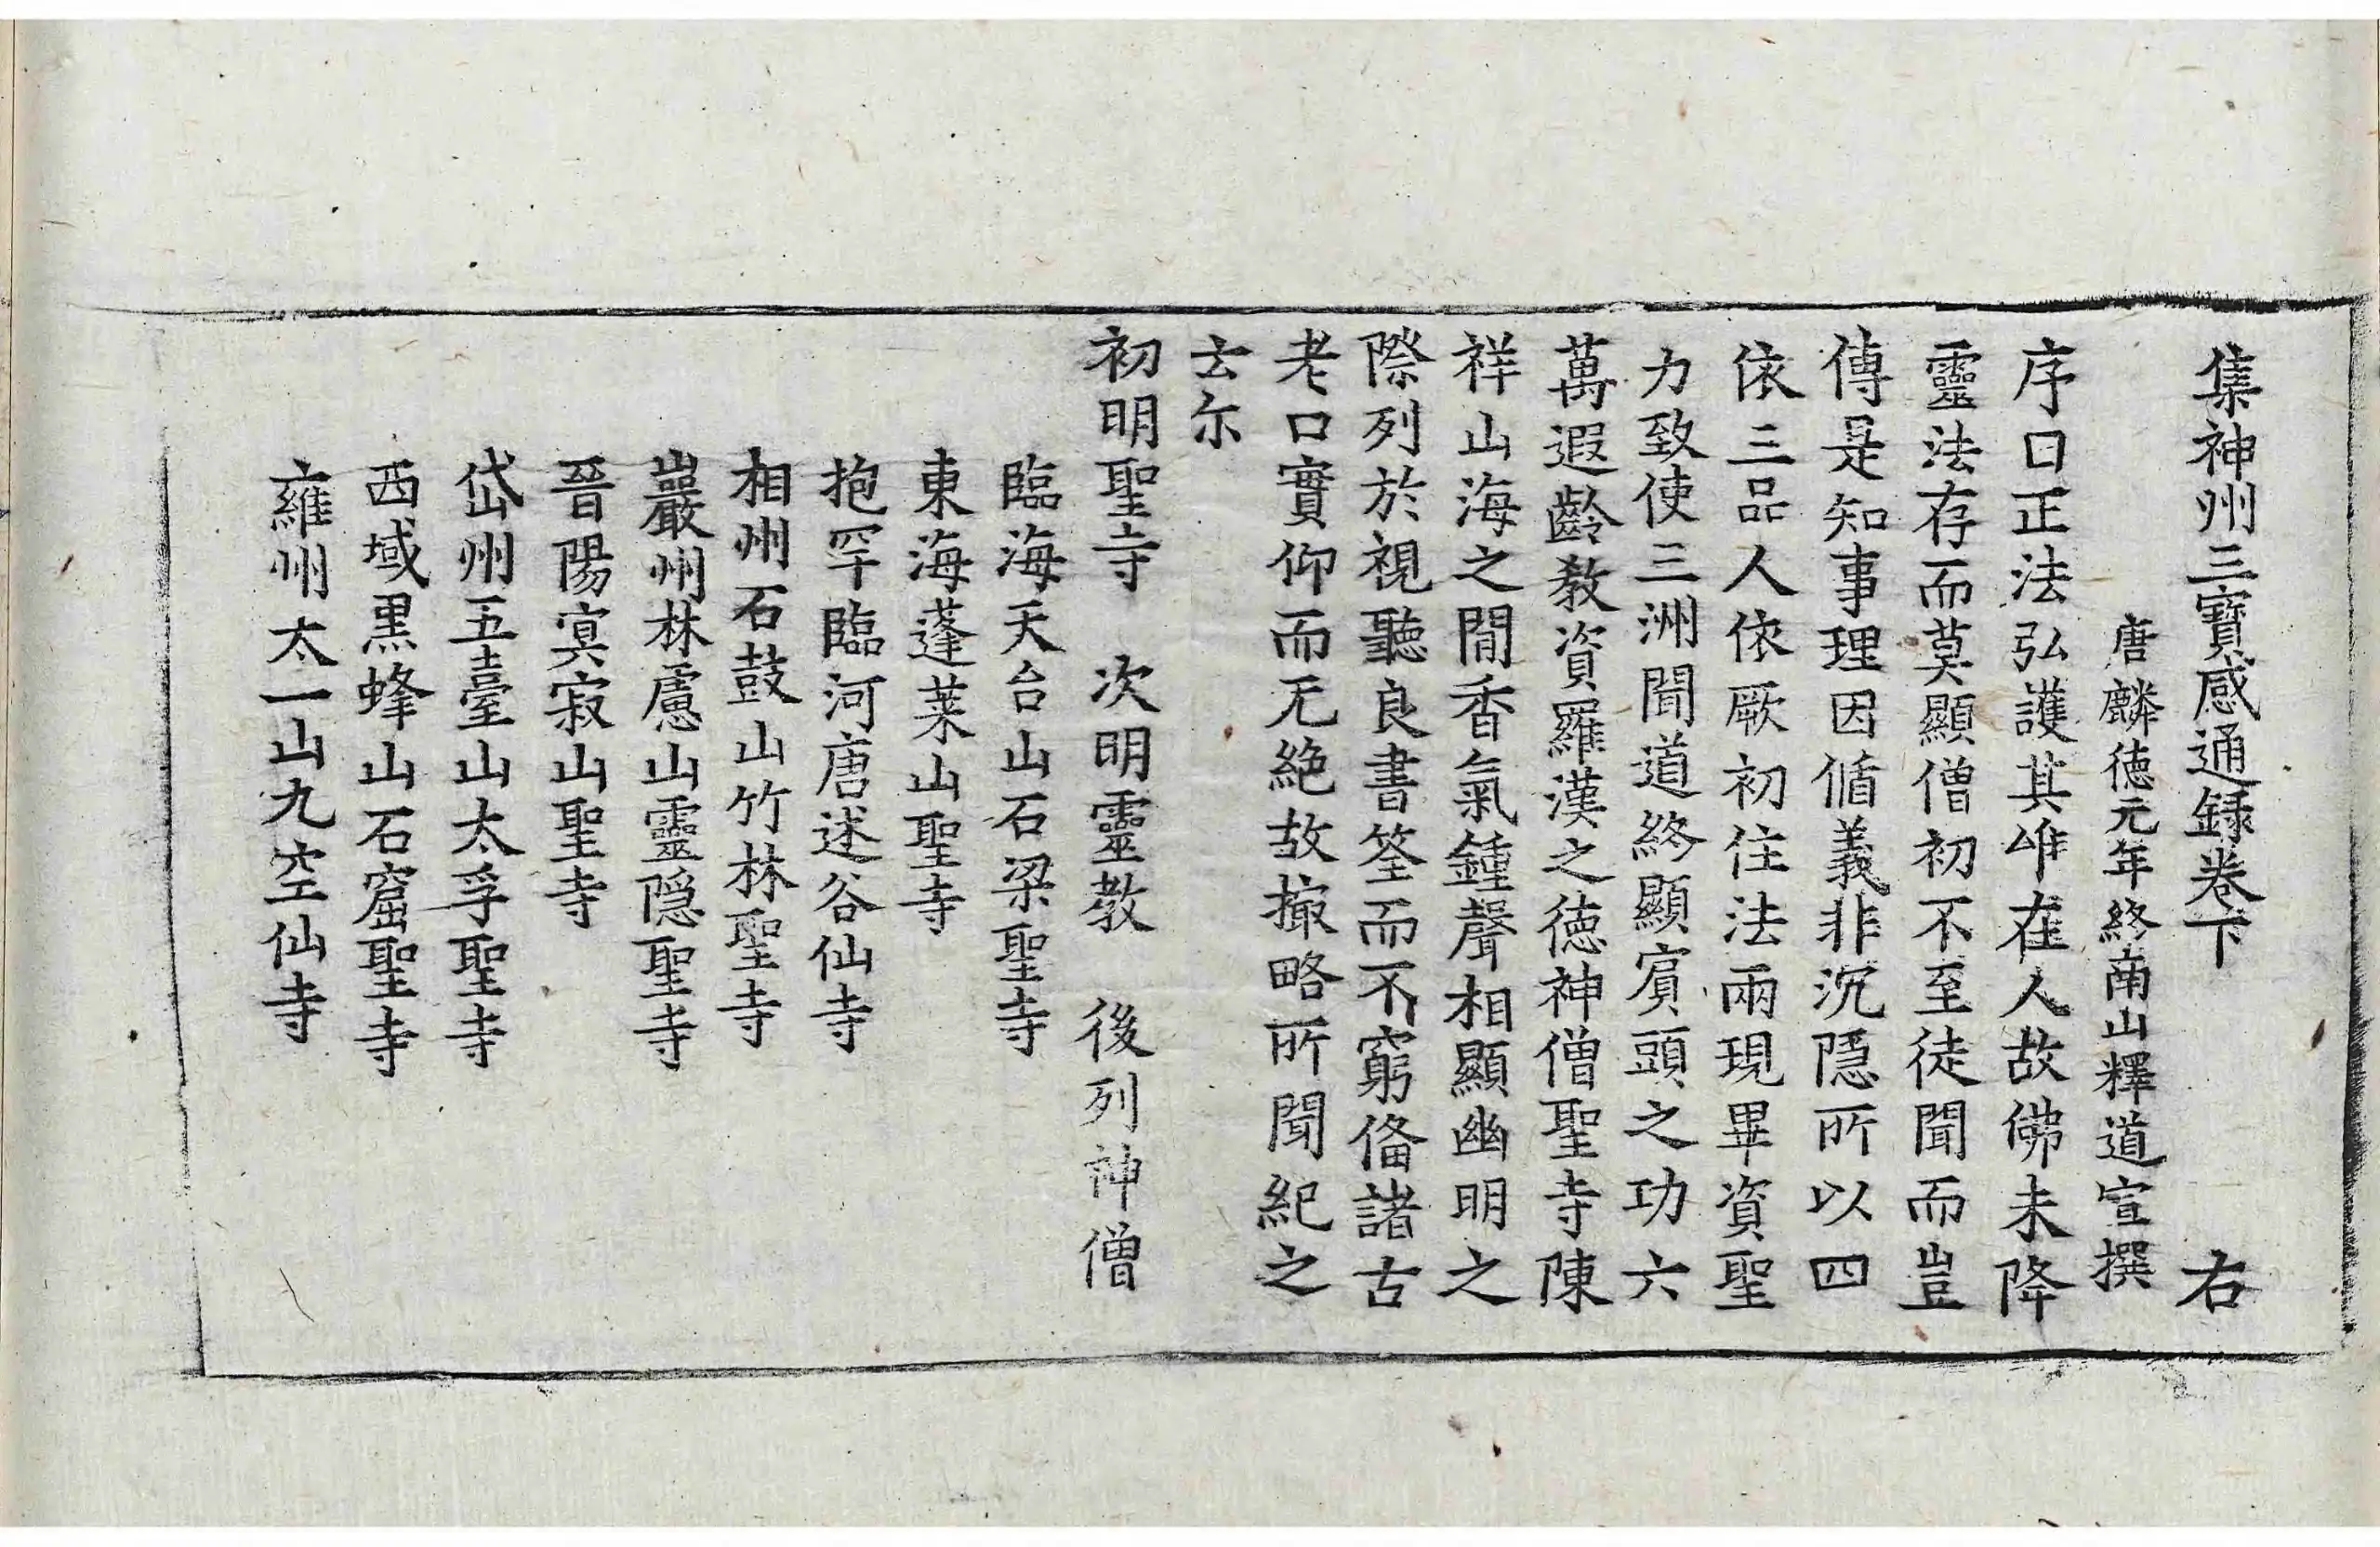 集神州三寶感通録卷下 右
唐麟德元年終南山釋道宣撰
序曰正法弘護其唯在人故佛未降
靈法存而莫顯僧初不至徒聞而豈
傳是知事理因循義非沉隱所以四
依三品人依厥初住法兩現畢資聖
力致使三洲聞道終顯賔頭之功六
萬遐齡教資羅漢之德神僧聖寺陳
祥山海之間香氣鍾聲相顯幽明之
際列於視聽良書筌而不窮俻諸古
老口實仰而无絶故撮略所聞紀之
云尒
初明聖寺 次明靈教 後列神僧
臨海天台山石梁聖寺
東海蓬萊山聖寺
抱罕臨河唐述谷仙寺
相州石鼓山竹林聖寺
巖州林慮山靈隱聖寺
晉陽㝠寂山聖寺
岱州五臺山太孚聖寺
西域黒蜂山石窟聖寺
雍州太一山九空仙寺